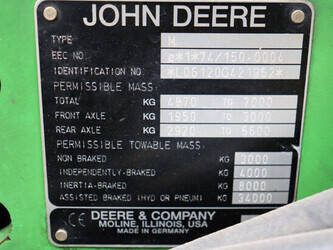 JOHN DEERE
TYPE
EEC NO.
IDENTIFICATION NO.
PERMISSIBLE MASS:
TOTAL KG 4870 TO 7200
FRONT AXLE KG 1950 TO 3000
REAR AXLE KG 2920 TO 5600
PERMISSIBLE TOWABLE MASS:
NON BRAKED KG 3000
INDEPENDENTLY-BRAKED KG 4000
INERTIA-BRAKED KG 8000
ASSISTED BRAKED (HYD OR PNEUM) KG 34000
DEERE & COMPANY
MOLINE, ILLINOIS, USA
MADE IN GERMANY